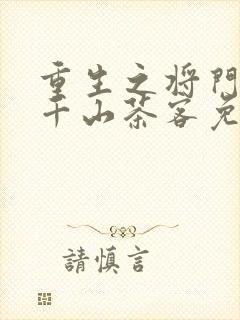 重生之将門
千山茶客免
請慎言